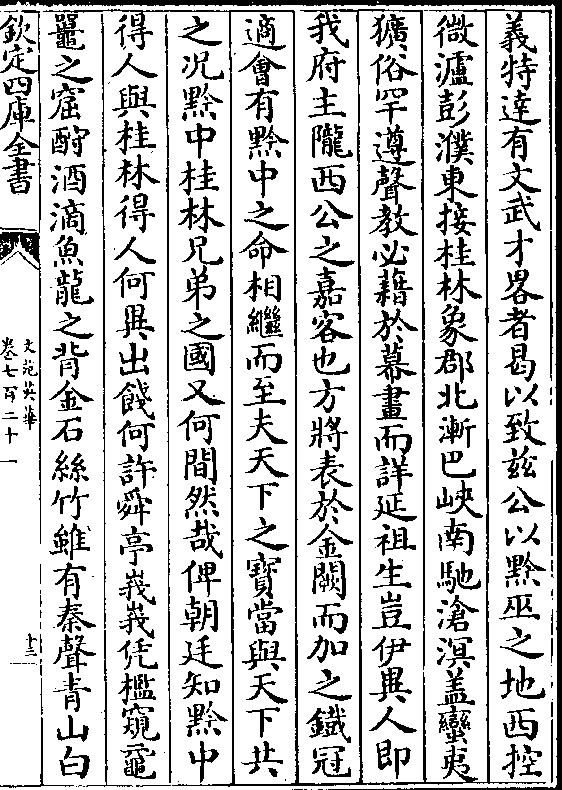 義特達有文武才畧者曷以致兹公以黔巫之地西控
微瀘彭濮東接桂林象郡北漸巴峽南馳滄溟蓋蠻夷
獷俗罕遵聲教必藉於幕畫而詳延祖生豈伊異人即
我府主隴西公之嘉客也方將表於金闕而加之鐵冠
適會有黔中之命相繼而至夫天下之寶當與天下共
之况黔中桂林兄弟之國又何間然哉俾朝廷知黔中
得人與桂林得人何異出餞何許舜亭峩峩凭檻窺黿
鼉之窟酹酒滴魚龍之背金石絲竹雖有秦聲青山白
欽定四庫全書
文苑英華
卷七百二十一
十三